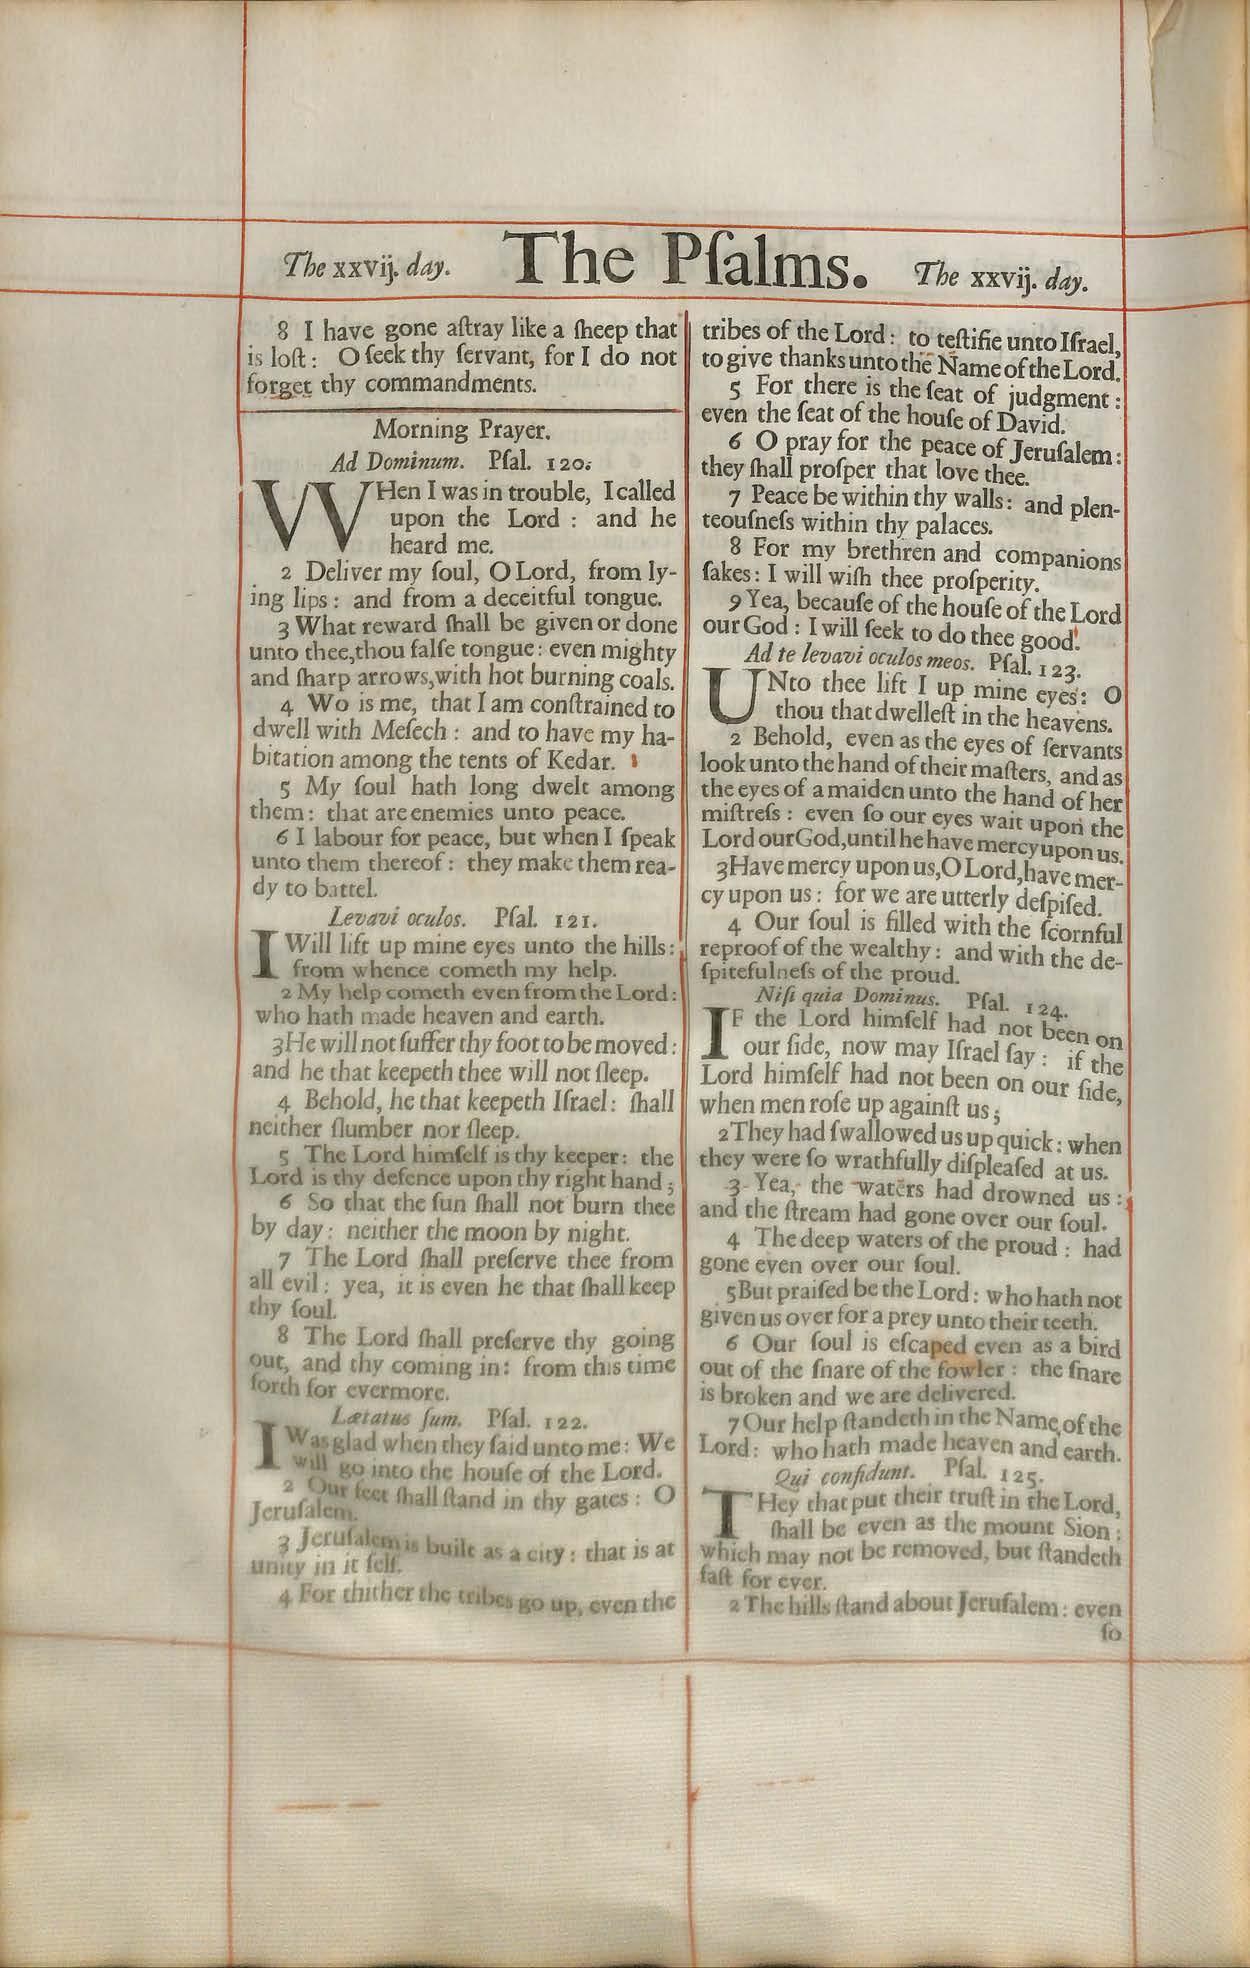 The xxvij. day. The Pſalms. The xxvij. day.
8 I have gone aſtray like a ſheep that
is loſt: O ſeek thy ſervant, for I do not
forget thy commandments.
Morning Prayer.
Ad Dominum. Pſal. 120.
WHen I was in trouble, I called
upon the Lord : and he
heard me.
2 Deliver my ſoul, O Lord, from ly-
ing lips: and from a deceitful tongue.
3 What reward ſhall be given or done
unto thee, thou falſe tongue: even mighty
and ſharp arrows, with hot burning coals.
4 Wo is me, that I am conſtrained to
dwell with Meſech : and to have my ha-
bitation among the tents of Kedar.
5 My ſoul hath long dwelt among
them: that are enemies unto peace.
6 I labour for peace, but when I ſpeak
unto them thereof: they make them rea-
dy to battel.
Levavi oculos. Pſal. 121.
I Will lift up mine eyes unto the hills:
from whence cometh my help.
2 My help cometh even from the Lord:
who hath made heaven and earth.
3 He will not ſuffer thy foot to be moved:
and he that keepeth thee will not ſleep.
4 Behold, he that keepeth Iſrael: ſhall
neither ſlumber nor ſleep.
5 The Lord himſelf is thy keeper: the
Lord is thy defence upon thy right hand;
6 So that the ſun ſhall not burn thee
by day: neither the moon by night.
7 The Lord ſhall preſerve thee from
all evil: yea, it is even he that ſhall keep
thy ſoul.
8 The Lord ſhall preſerve thy going
out, and thy coming in: from this time
forth for evermore.
Lætatus ſum. Pſal. 122.
I Was glad when they ſaid unto me: We
will go into the houſe of the Lord.
2 Our feet ſhall ſtand in thy gates: O
Jeruſalem.
3 Jeruſalem is built as a city: that is at
unity in it ſelf.
4 For thither the tribes go up, even the
tribes of the Lord: to teſtifie unto Iſrael,
to give thanks unto the Name of the Lord.
5 For there is the ſeat of judgment:
even the ſeat of the houſe of David.
6 O pray for the peace of Jeruſalem:
they ſhall proſper that love thee.
7 Peace be within thy walls: and plen-
teouſneſs within thy palaces.
8 For my brethren and companions
ſakes: I will wiſh thee proſperity.
9 Yea, becauſe of the houſe of the Lord
our God : I will ſeek to do thee good.
Ad te levavi oculos meos. Pſal. 123.
UNto thee lift I up mine eyes: O
thou that dwelleſt in the heavens.
2 Behold, even as the eyes of ſervants
look unto the hand of their maſters, and as
the eyes of a maiden unto the hand of her
miſtreſs: even ſo our eyes wait upon the
Lord our God, until he have mercy upon us.
3 Have mercy upon us, O Lord, have mer-
cy upon us: for we are utterly deſpiſed.
4 Our ſoul is filled with the ſcornful
reproof of the wealthy: and with the de-
ſpitefulneſs of the proud.
Niſi quia Dominus. Pſal. 124.
IF the Lord himſelf had not been on
our ſide, now may Iſrael ſay: if the
Lord himſelf had not been on our ſide,
when men roſe up againſt us;
2 They had ſwallowed us up quick: when
they were ſo wrathfully diſpleaſed at us.
3 Yea, the waters had drowned us:
and the ſtream had gone over our ſoul.
4 The deep waters of the proud: had
gone even over our ſoul.
5 But praiſed be the Lord: who hath not
given us over for a prey unto their teeth.
6 Our ſoul is eſcaped even as a bird
out of the ſnare of the fowler: the ſnare
is broken and we are delivered.
7 Our help ſtandeth in the Name of the
Lord: who hath made heaven and earth.
Qui confidunt. Pſal. 125.
THey that put their truſt in the Lord,
ſhall be even as the mount Sion:
which may not be removed, but ſtandeth
faſt for ever.
2 The hills ſtand about Jeruſalem: even
ſo